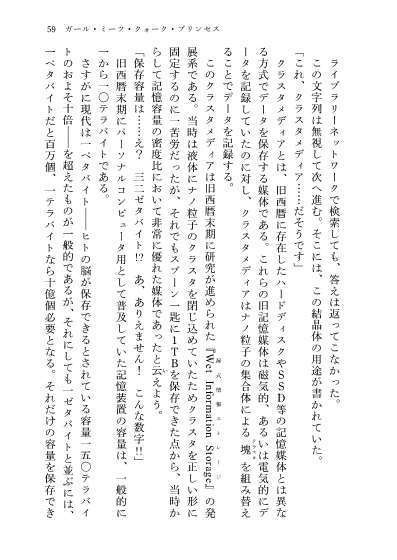 59　ガール・ミーツ・クォーク・プリンセス
ライブラリーネットワークで検索しても、答えは返ってこなかった。
この文字列は無視して次へ進む。そこには、この結晶体の用途が書かれていた。
「これ、クラスタメディア……だそうです」
クラスタメディアとは、旧西暦に存在したハードディスクやSSD等の記憶媒体とは異な
る方式でデータを保存する媒体である。これらの旧記憶媒体は磁気的、あるいは電気的にデ
ータを記録していたのに対し、クラスタメディアはナノ粒子の集合体による塊を組み替え
ることでデータを記録する。
このクラスタメディアは旧西暦末期に研究が進められた『Wet Information Storage』の発
展系である。当時は液体にナノ粒子のクラスタを閉じ込めていたためクラスタを正しい形に
固定するのに一苦労だったが、それでもスプーン一匙に1TBを保存できた点から、当時か
らして記憶容量の密度比において非常に優れた媒体であったと云えよう。
「保存容量は……え？　三二ゼタバイト!?　あ、ありえません！　こんな数字!!」
旧西暦末期にパーソナルコンピュータ用として普及していた記憶装置の容量は、一般的に
一から一〇テラバイトである。
さすがに現代は一ペタバイト――ヒトの脳が保存できるとされている容量一五〇テラバイ
トのおよそ十倍――を超えたものが一般的であるが、それにしても一ゼタバイトと並ぶには、
一ペタバイトだと百万個、一テラバイトなら十億個必要となる。それだけの容量を保存でき